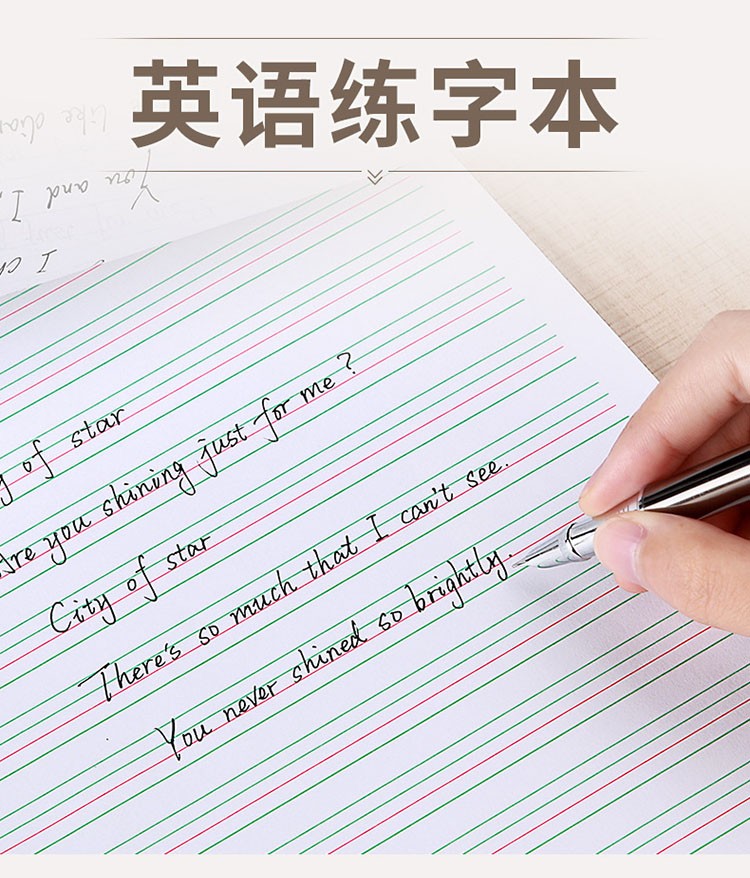 英语练字本
like
You and I,
I
of star
Are you shining just for me?
City of star
There's so much that I can't see.
You never shined so brightly.